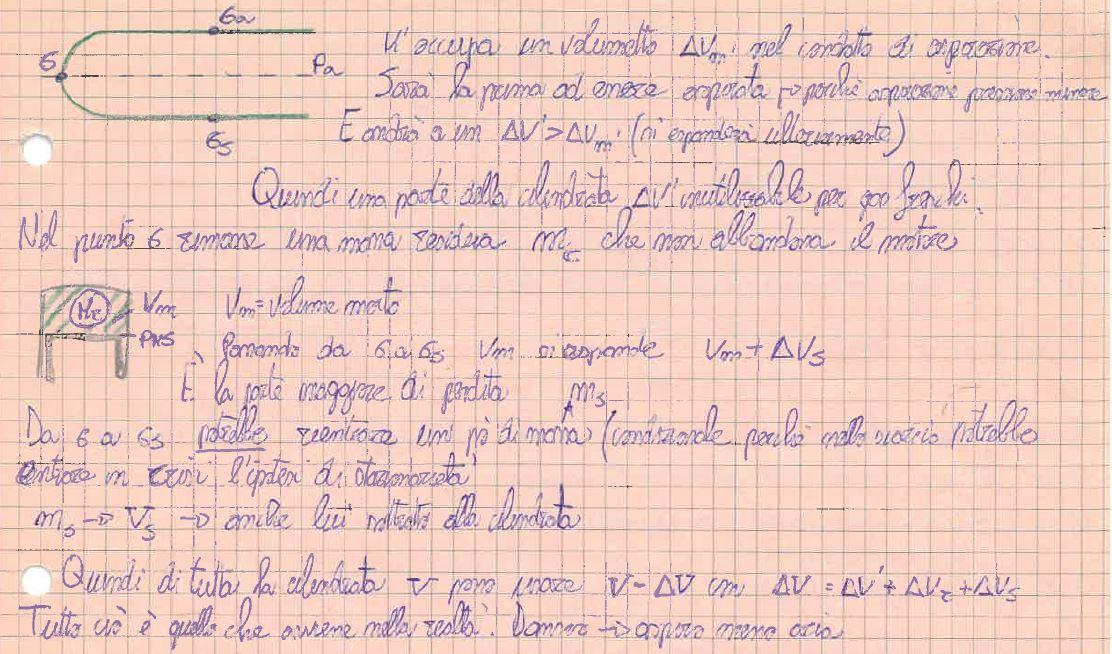 6a
6
Pa
6s
M' occupa un volumetto ΔVm' nel condotto di aspirazione.
Sarà la prima ad essere aspirata → perché aspirazione pressione minore
E andrà a un ΔV' > ΔVm' (si espanderà ulteriormente)
Quindi una parte della cilindrata ΔV' inutilizzabile per gas freschi.
Nel punto 6 rimane una massa residua mr che non abbandona il motore
Mr Vm Vm = volume morto
PMS
Passando da 6 a 6s Vm si espande Vm + ΔVs
È la parte maggiore di perdita ms
Da 6 a 6s potrebbe rientrare un pò di massa (condizionale perché nello scarico potrebbe
entrare in crisi l'ipotesi di stazionarietà
ms → Vs → anche lui sottratto alla cilindrata
Quindi di tutta la cilindrata V posso usare V - ΔV con ΔV = ΔV' + ΔVr + ΔVs
Tutto ciò è quello che avviene nella realtà. Danno → aspiro meno aria